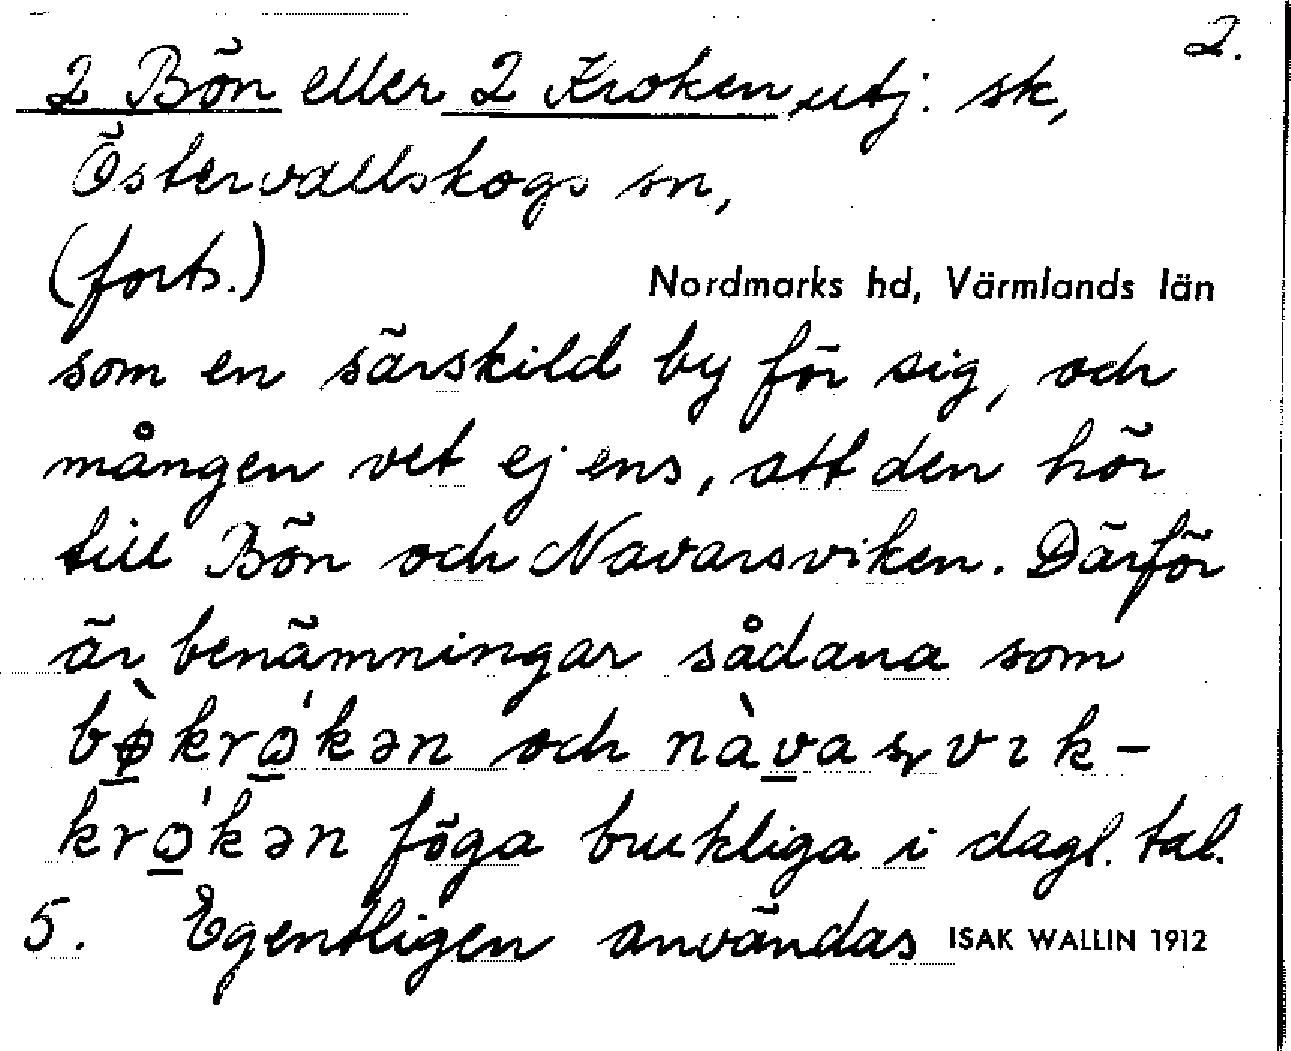 2.
2 Bön eller 2 Kroken utj. sk,
Östervallskogs sn,
(forts.)
Nordmarks hd, Värmlands län
som en särskild by för sig, och
mången vet ej ens, att den hör
till Bön och Navarsviken. Därför
är benämningar sådana som
bø̀krọ́kən och nàvaʂvık-
krọ́kən föga brukliga i dagl. tal.
5. Egentligen användas
ISAK WALLIN 1912